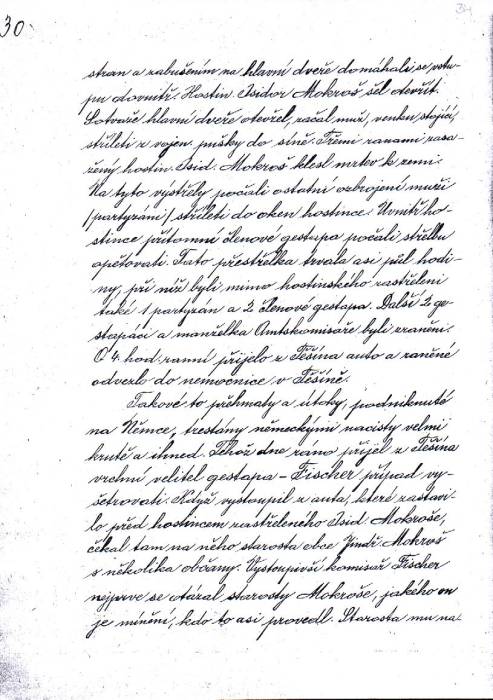 30.
34
stran a zabušením na hlavní dveře domáhali se vstu-
pu dovnitř. Hostin. Isidor Mokroš šel otevřít.
Sotvaže hlavní dveře otevřel, začal muž, venku stojící,
stříleti z vojen. pušky do síně. Třemi ranami zasa-
žený hostin. Isid. Mokroš klesl mrtev k zemi.
Na tyto výstřely počali ostatní ozbrojení muži
/partyzáni/ stříleti do oken hostince. Uvnitř ho-
stince přítomné členové gestapa počali střelbu
opětovati. Tato přestřelka trvala asi půl hodi-
ny, při níž byli mimo hostinského zastřeleni
také 1 partyzán a 2 členové gestapa. Další 2 ge-
stapáci a manželka Amtskomisaře byli zraněni.
O 4. hod. ranní přijelo z Těšína auto a raněné
odvezlo do nemocnice v Těšíně.
Takové to přehmaty a útoky, podniknuté
na Němce, trestány německými nacisty velmi
krutě a ihned. Téhož dne ráno přijel z Těšína
vrchní velitel gestapa - Fischer případ vy-
šetrovati. Když vystoupil z auta, které zastavi-
lo před hostincem zastřeleného Isid. Mokroše,
čekal tam na něho starosta obce Jindř. Mokroš
s několika občany. Vystoupivší komisař Fischer
nejprve se otázal starosty Mokroše, jakého on
je mínění, kdo to asi provedl. Starosta mu na-